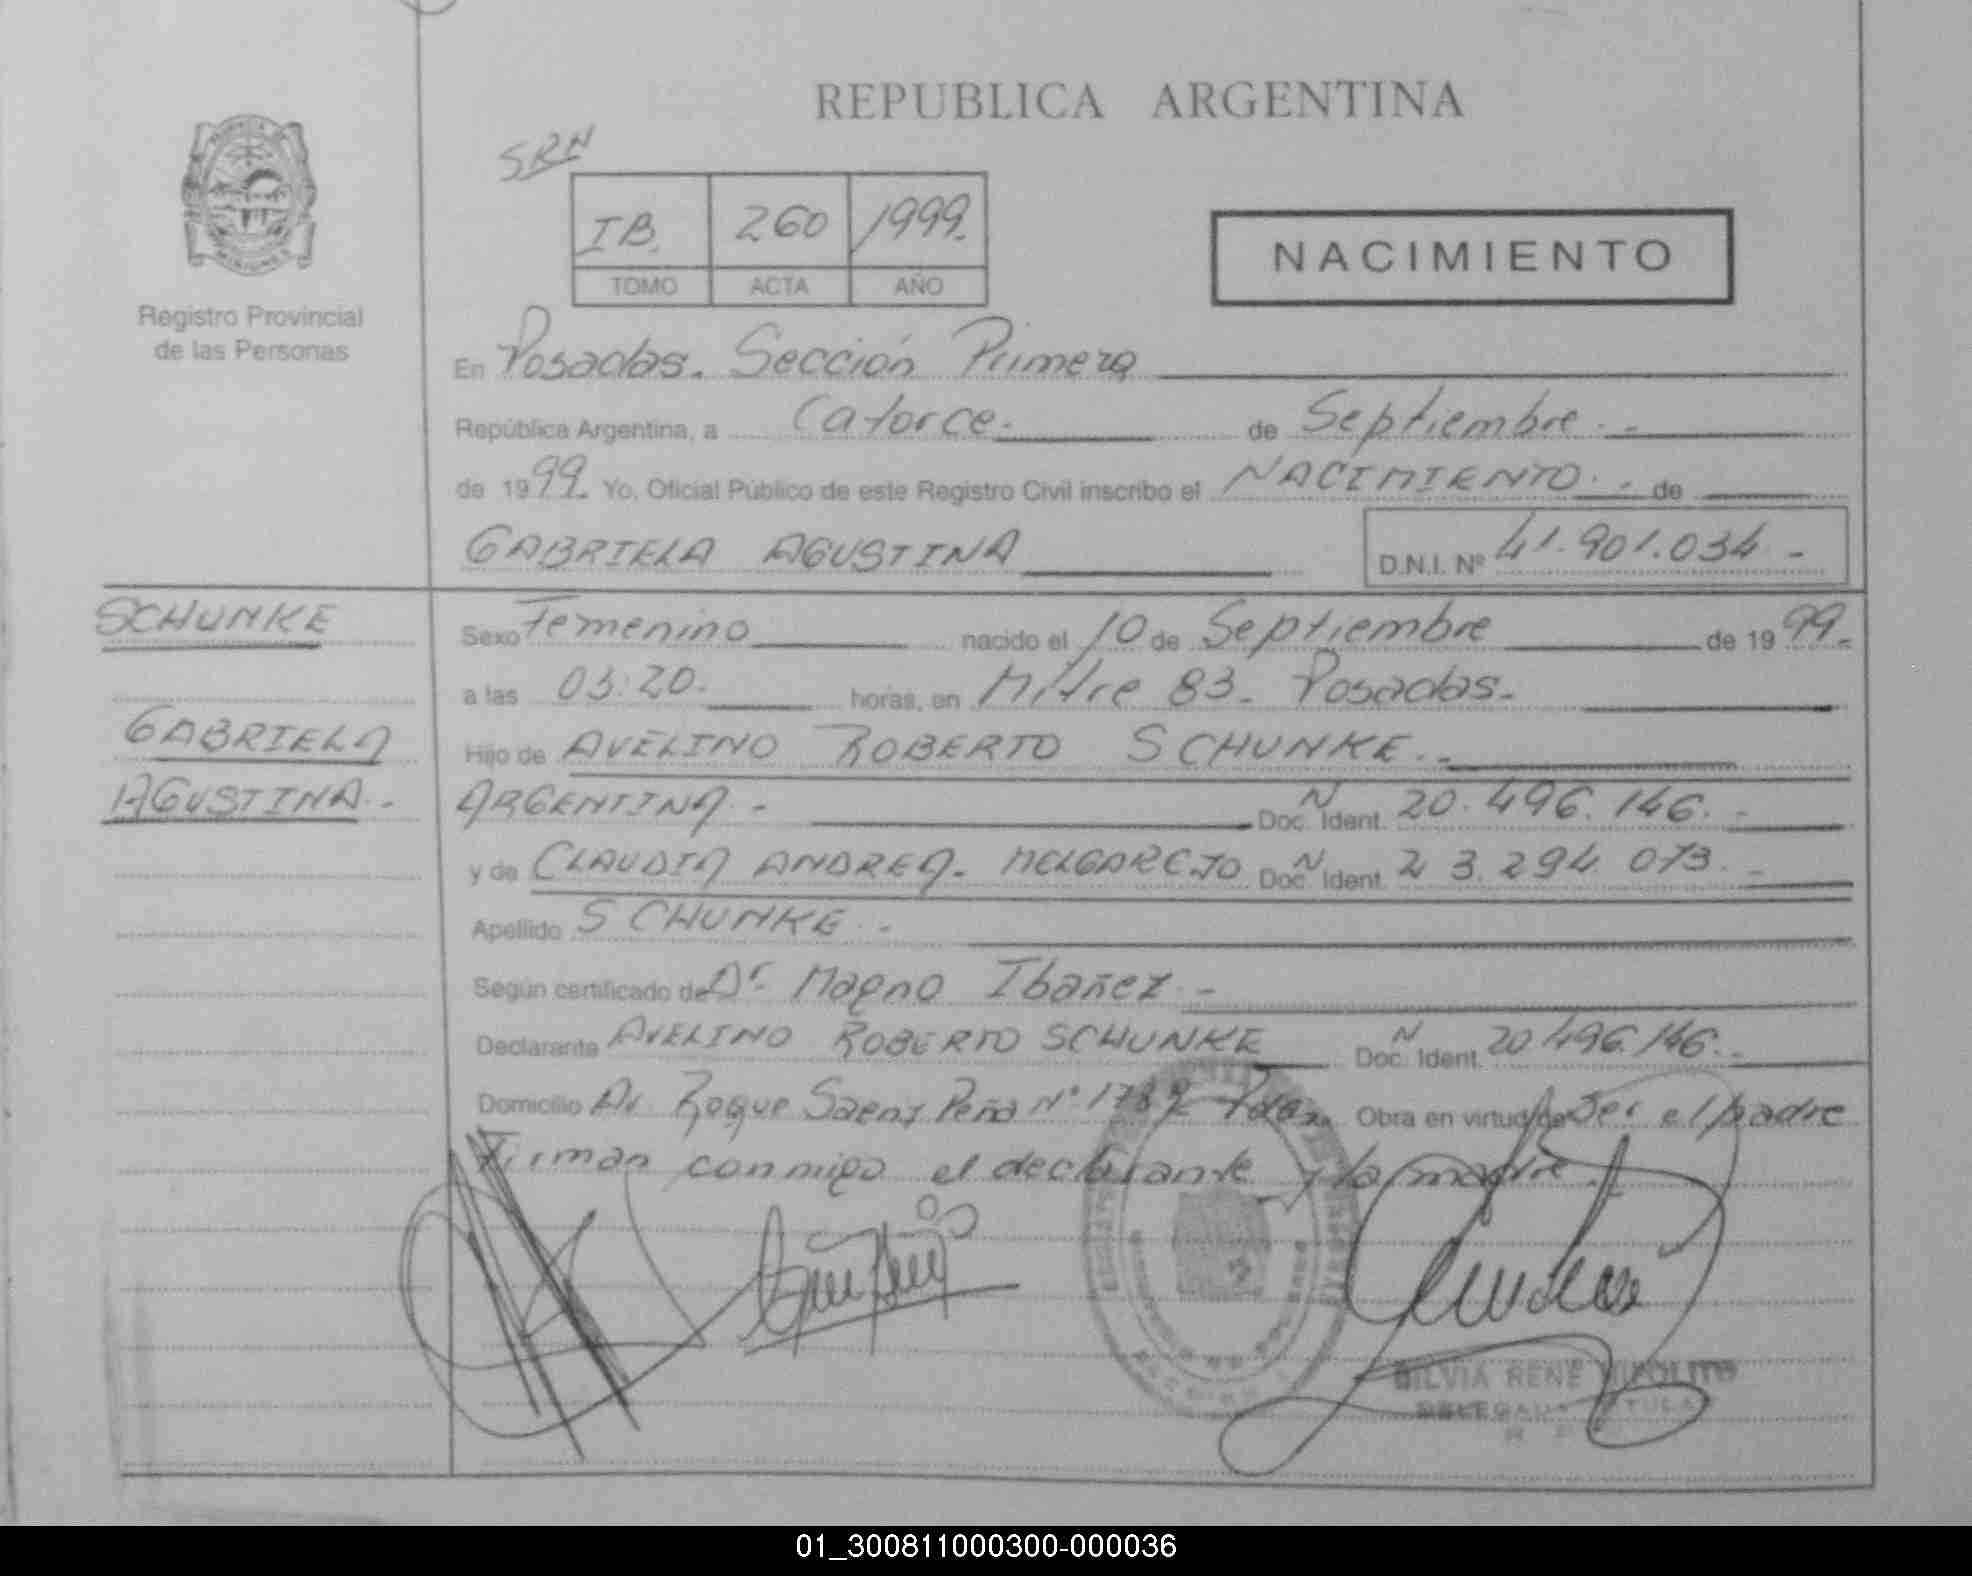 REPUBLICA ARGENTINA
SRN
IB. 260 1999.
TOMO ACTA AÑO
NACIMIENTO
Registro Provincial
de las Personas
En Posadas. Sección Primera
República Argentina, a Catorce. de Septiembre.
de 1999. Yo, Oficial Público de este Registro Civil inscribo el NACIMIENTO. de
GABRIELA AGUSTINA D.N.I. Nº 41.901.034-
SCHUNKE
GABRIELA
AGUSTINA.-
Sexo Femenino nacido el 10 de Septiembre de 1999.-
a las 03:20. horas, en Mitre 83- Posadas.
Hijo de AVELINO ROBERTO SCHUNKE.-
ARGENTINA.- Doc. Ident. N 20.496.146.-
y de CLAUDIA ANDREA. MELGAREJO Doc. Ident. N 23.294.073.-
Apellido SCHUNKE.-
Según certificado de Dr. Magno Ibañez.-
Declarante AVELINO ROBERTO SCHUNKE Doc. Ident. N 20.496.146.-
Domicilio Av. Roque Saenz Peña Nº 1789 Pdas. Obra en virtud de Ser el padre
Firman conmigo el declarante y la madre.
SILVIA RENE HIPOLITO
DELEGADA TITULAR
01_300811000300-000036